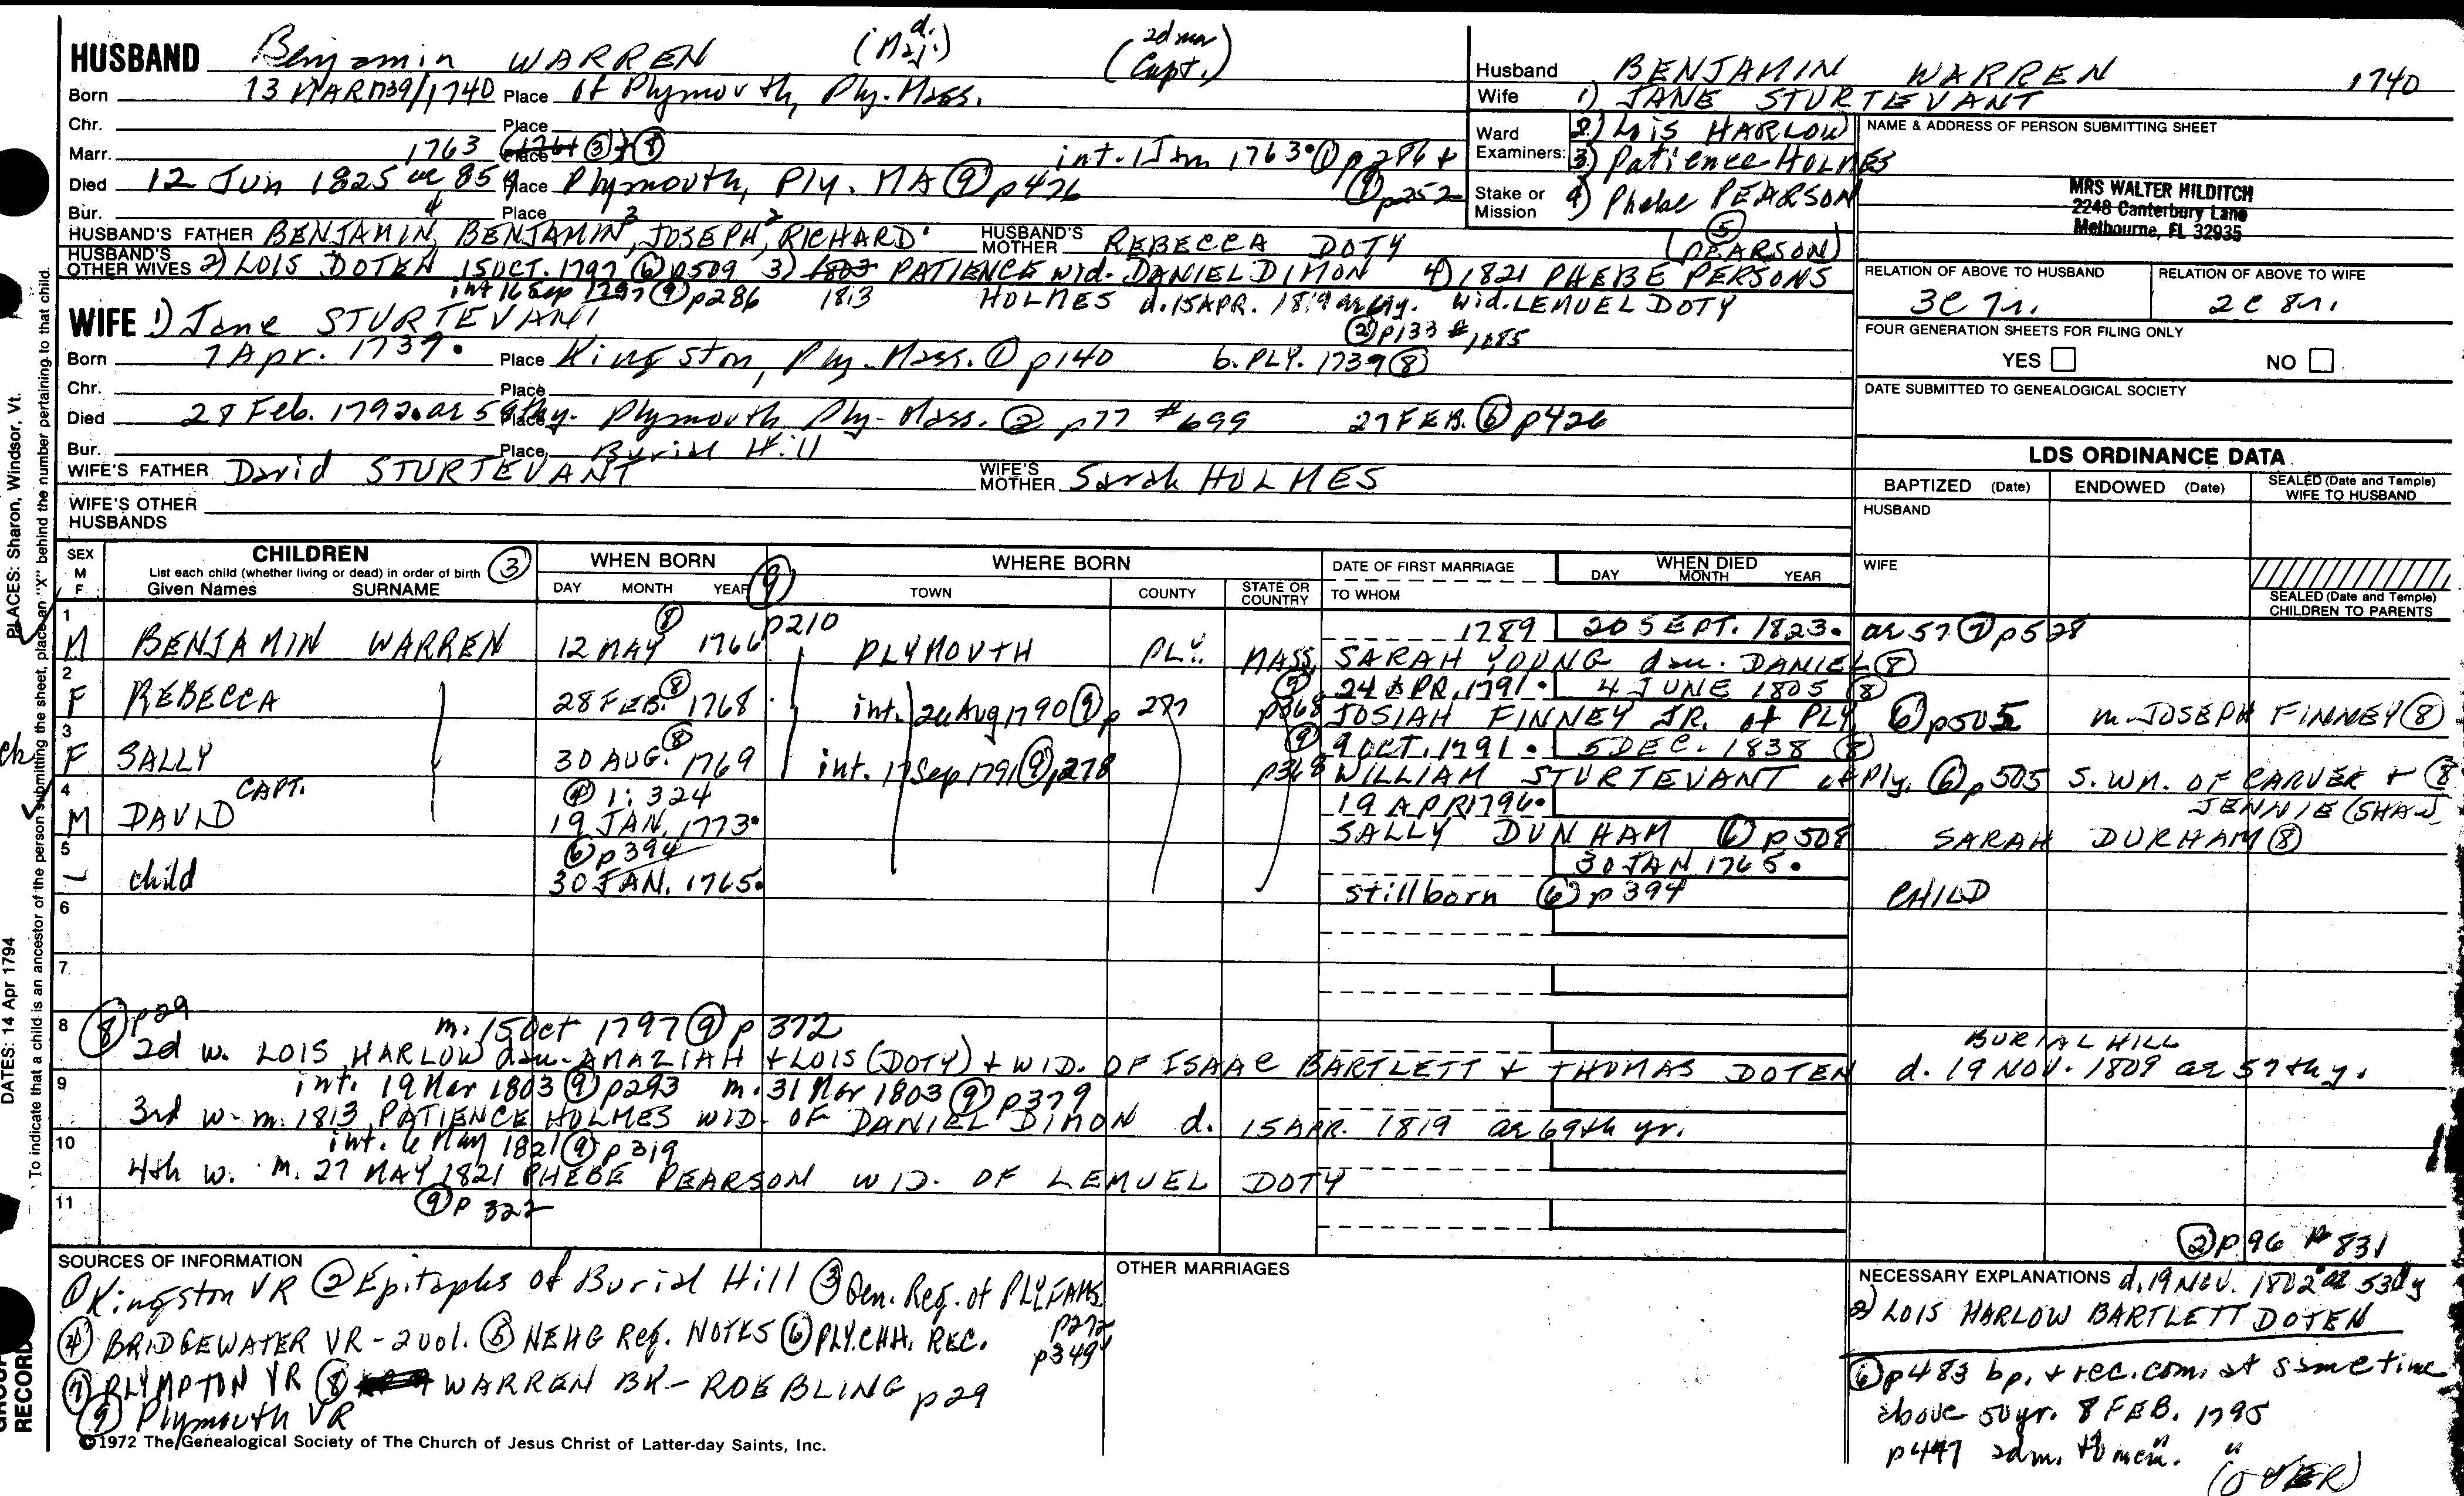 HUSBAND Benjamin WARREN (Maj.) d. (Capt.) 2d mar
Born 13 MAR 1739/1740 Place of Plymouth, Ply. Mass.
Chr. Place
Marr. 1763 Place (1764 ③) + ⑧ int. 1 Jan 1763. ① p286 +
Died 12 Jun 1825 ae 85 y Place Plymouth, Ply. MA ⑨ p426 ⑨ p252
Bur. Place
HUSBAND'S FATHER BENJAMIN 4, BENJAMIN 3, JOSEPH 2, RICHARD 1 HUSBAND'S MOTHER REBECCA DOTY ⑤ (PEARSON)
HUSBAND'S OTHER WIVES 2) LOIS DOTEN 15 OCT. 1797 ⑥ p509 3) 1803 PATIENCE wid. DANIEL DIMON 4) 1821 PHEBE PERSONS
int 16 Sep 1797 ⑨ p286 1813 HOLMES d. 15 APR. 1819 ae 69y. wid. LEMUEL DOTY
WIFE 1) Jane STURTEVANT ② p133 # 1085
Born 7 Apr. 1739. Place Kingston, Ply. Mass. ① p140 b. PLY. 1739 ⑧
Chr. Place
Died 28 Feb. 1792. ae 54thy. Place Plymouth Ply-Mass. ② p77 #699 27 FEB. ⑥ p426
Bur. Place Burial Hill
WIFE'S FATHER David STURTEVANT WIFE'S MOTHER Sarah HOLMES
WIFE'S OTHER HUSBANDS
Husband BENJAMIN WARREN 1740
Wife 1) JANE STURTEVANT
Ward Examiners: 2) Lois HARLOW
3) Patience HOLMES
Stake or Mission 4) Phebe PEARSON
NAME & ADDRESS OF PERSON SUBMITTING SHEET
MRS WALTER HILDITCH
2248 Canterbury Lane
Melbourne, FL 32935
RELATION OF ABOVE TO HUSBAND RELATION OF ABOVE TO WIFE
3C 7r. 2C 8r.
FOUR GENERATION SHEETS FOR FILING ONLY
YES NO
DATE SUBMITTED TO GENEALOGICAL SOCIETY
LDS ORDINANCE DATA
BAPTIZED (Date) ENDOWED (Date) SEALED (Date and Temple) WIFE TO HUSBAND
HUSBAND
WIFE
SEALED (Date and Temple) CHILDREN TO PARENTS
SEX M F CHILDREN ③ WHEN BORN WHERE BORN DATE OF FIRST MARRIAGE WHEN DIED
List each child (whether living or dead) in order of birth
Given Names SURNAME DAY MONTH YEAR ⑨ TOWN COUNTY STATE OR COUNTRY TO WHOM DAY MONTH YEAR
1 ⑧ p210 1789 20 SEPT. 1823. ae 57 ⑦ p528
M BENJAMIN WARREN 12 MAY 1766 PLYMOUTH PLY. MASS. SARAH YOUNG dau. DANIEL ⑧
2 ⑧ ⑨ 24 APR. 1791. 4 JUNE 1805 ⑧
F REBECCA 28 FEB. 1768 int. 26 Aug 1790 ⑨ p 277 p368 JOSIAH FINNEY JR. of PLY. ⑥ p505 m. JOSEPH FINNEY ⑧
3 ⑧ ⑨ 9 OCT. 1791. 5 DEC. 1838 ⑧
F SALLY 30 AUG. 1769 int. 17 Sep 1791 ⑨ p278 p368 WILLIAM STURTEVANT of Ply. ⑥ p505 S. WM. OF CARVER + ⑧
JENNIE (SHAW)
4 CAPT. ④ 1: 324 19 APR 1796.
M DAVID 19 JAN. 1773. SALLY DUNHAM ⑥ p508 SARAH DURHAM ⑧
5 ⑥ p394 30 JAN 1765.
– child 30 JAN. 1765. stillborn ⑥ p394 CHILD
6
7
8 ⑧ p29 m. 15 Oct 1797 ⑨ p 372 BURIAL HILL
2d w. LOIS HARLOW dau. AMAZIAH + LOIS (DOTY) + WID. OF ISAAC BARTLETT + THOMAS DOTEN d. 19 NOV. 1809 ae 57th y.
9 int. 19 Mar 1803 ⑨ p293 m. 31 Mar 1803 ⑨ p379
3rd w. m. 1813 PATIENCE HOLMES WID. OF DANIEL DIMON d. 15 APR. 1819 ae 69th yr.
10 int. 6 May 1821 ⑨ p319
4th w. m. 27 MAY 1821 PHEBE PEARSON WID. OF LEMUEL DOTY
11 ⑨ p 322
② p 96 # 831
SOURCES OF INFORMATION
① Kingston VR ② Epitaphs of Burial Hill ③ Gen. Reg. of PLY. FAMS.
p272
④ BRIDGEWATER VR - 2 vol. ⑤ NEHG Reg. NOTES ⑥ PLY. CHH. REC.
p349
⑦ PLYMPTON VR ⑧ WARREN BK - ROEBLING p29
⑨ Plymouth VR
©1972 The Genealogical Society of The Church of Jesus Christ of Latter-day Saints, Inc.
OTHER MARRIAGES
NECESSARY EXPLANATIONS d. 19 NOV. 1802 ae 53d y
2) LOIS HARLOW BARTLETT DOTEN
⑥ p483 bp. + rec. com. at same time
above 50 yr. 8 FEB. 1795
p447 adm. to mem. " "
(OVER)
PLACES: Sharon, Windsor, Vt.
DATES: 14 Apr 1794
To indicate that a child is an ancestor of the person submitting the sheet, place an "X" behind the number pertaining to that child.
RECORD